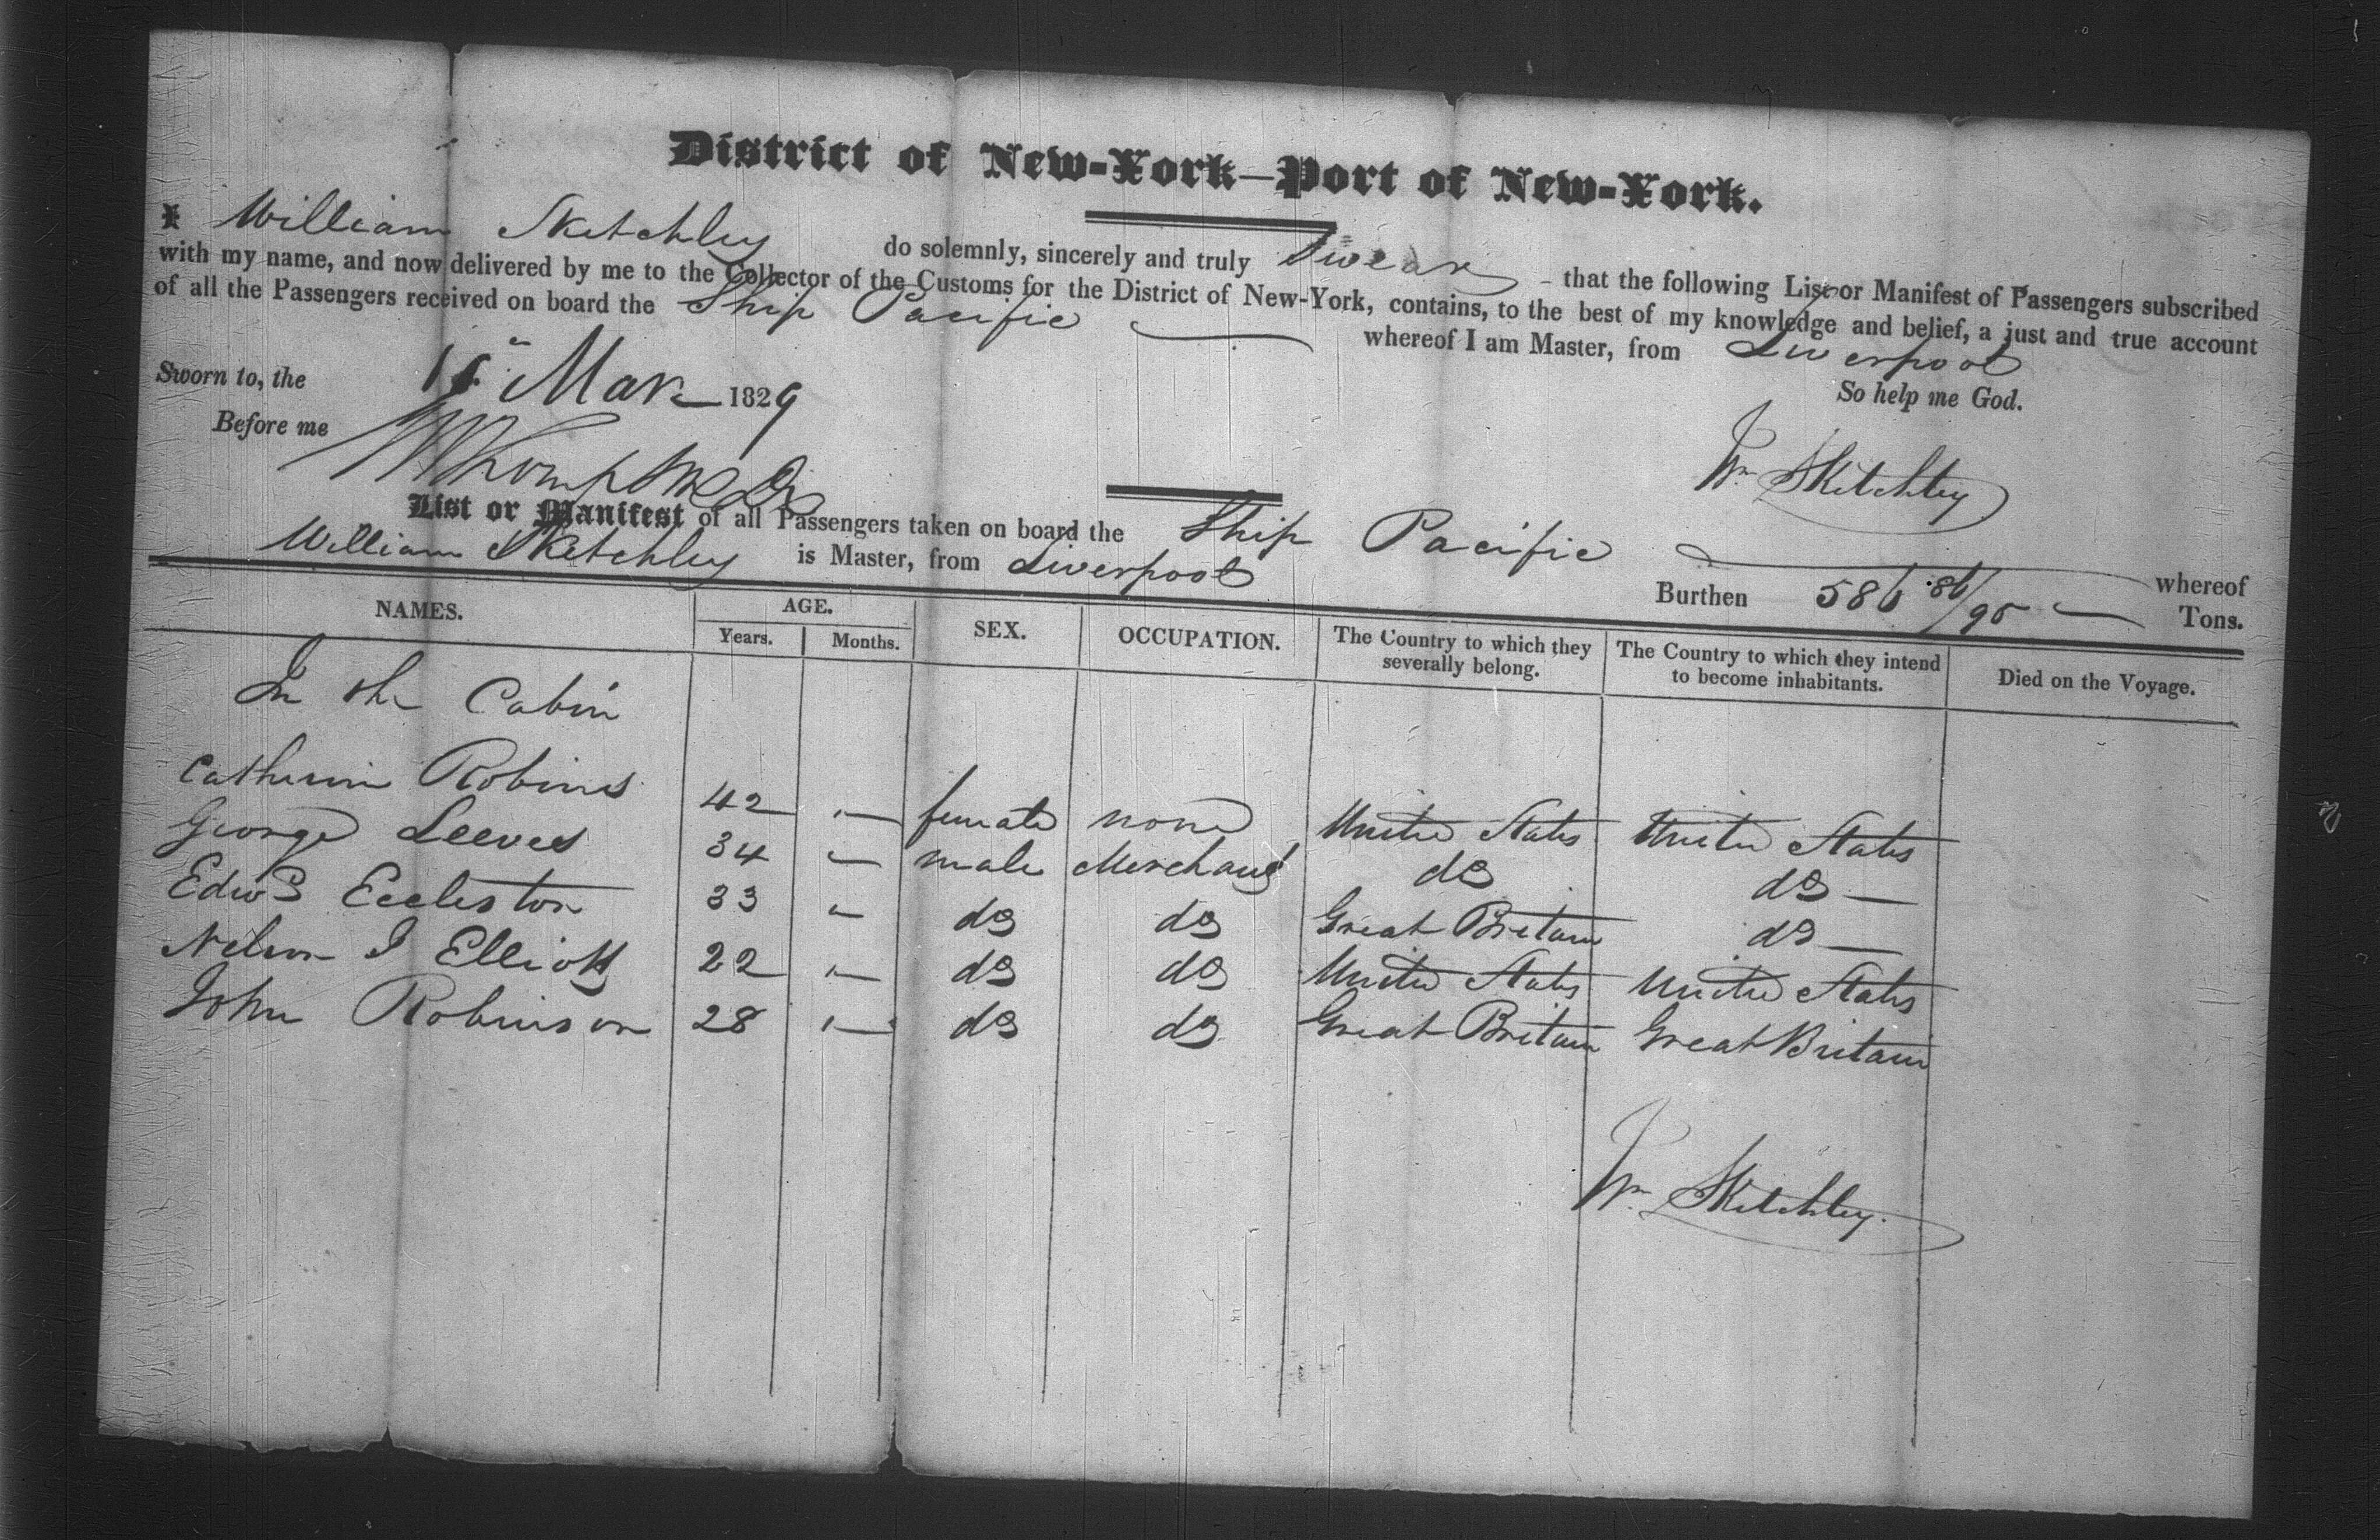 District of New-York—Port of New-York.
I William Sketchley do solemnly, sincerely and truly Swear – that the following List or Manifest of Passengers subscribed
with my name, and now delivered by me to the Collector of the Customs for the District of New-York, contains, to the best of my knowledge and belief, a just and true account
of all the Passengers received on board the Ship Pacific whereof I am Master, from Liverpool
So help me God.
Sworn to, the Mar 1829
Before me
Wm Sketchley
List or Manifest of all Passengers taken on board the Ship Pacific whereof
William Sketchley is Master, from Liverpool Burthen 586 86/95 Tons.
NAMES. AGE. Years. Months. SEX. OCCUPATION. The Country to which they severally belong. The Country to which they intend to become inhabitants. Died on the Voyage.
In the Cabin
Catherine Robins 42 — female none United States United States
George Leeves 34 — male Merchant do do —
Edwd Eccleston 33 — do do Great Britain do —
Nelson J Elliott 22 — do do United States United States
John Robinson 28 — do do Great Britain Great Britain
Wm Sketchley.